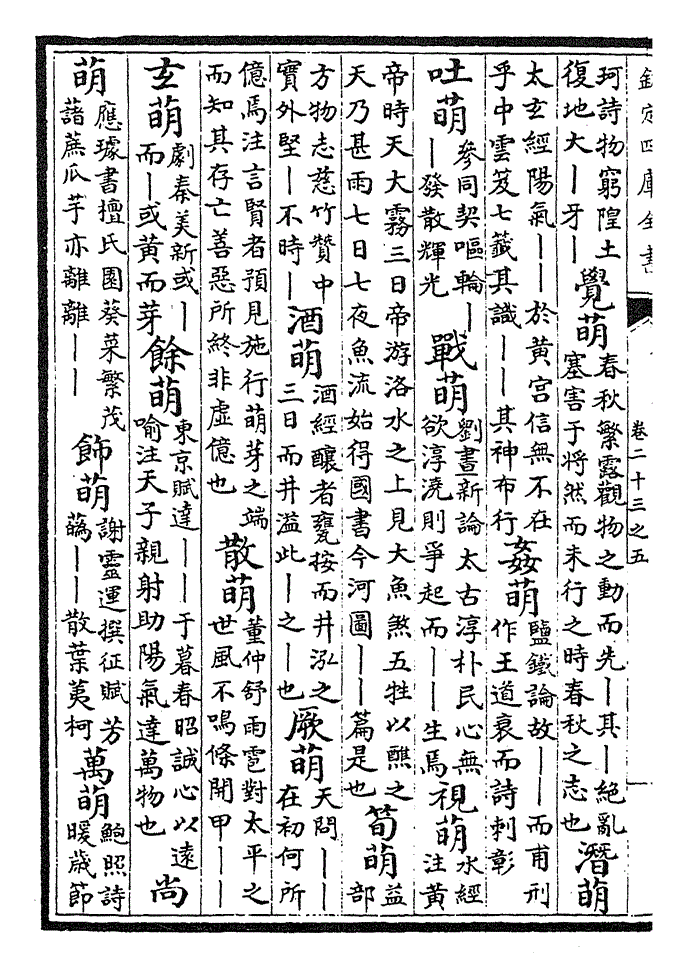 欽定四庫全書 卷二十三之五
珂詩物窮隍土復地大｜牙｜覺萌春秋繁露觀物之動而先｜其｜絶亂塞害于將然而未行之時春秋之志也潛萌
太玄經陽氣｜｜於黄宫信無不在乎中雲笈七籤其識｜｜其神布行姦萌鹽鐵論故｜｜而甫刑作王道衰而詩刺彰
吐萌參同契嘔輪｜｜發散輝光戰萌劉晝新論太古淳朴民心無欲淳澆則爭起而｜｜生焉視萌水經注黄
帝時天大霧三日帝游洛水之上見大魚煞五牲以醮之天乃甚雨七日七夜魚流始得國書今河圖｜｜篇是也筍萌益部
方物志慈竹贊中實外堅｜不時｜酒萌酒經釀者甕按而井泓之三日而井溢此｜之｜也厥萌天問｜｜在初何所
億焉注言賢者預見施行萌芽之端而知其存亡善惡所終非虚億也散萌董仲舒雨雹對太平之世風不鳴條開甲｜｜
玄萌劇秦美新或｜而｜或黄而芽餘萌東京賦達｜｜于暮春昭誠心以遠喻注天子親射助陽氣達萬物也尚
萌應璩書檀氏園葵菜繁茂藷蔗瓜芋亦離離｜｜飾萌謝靈運撰征賦芳蘤｜｜散葉荑柯萬萌鮑照詩暖歲節